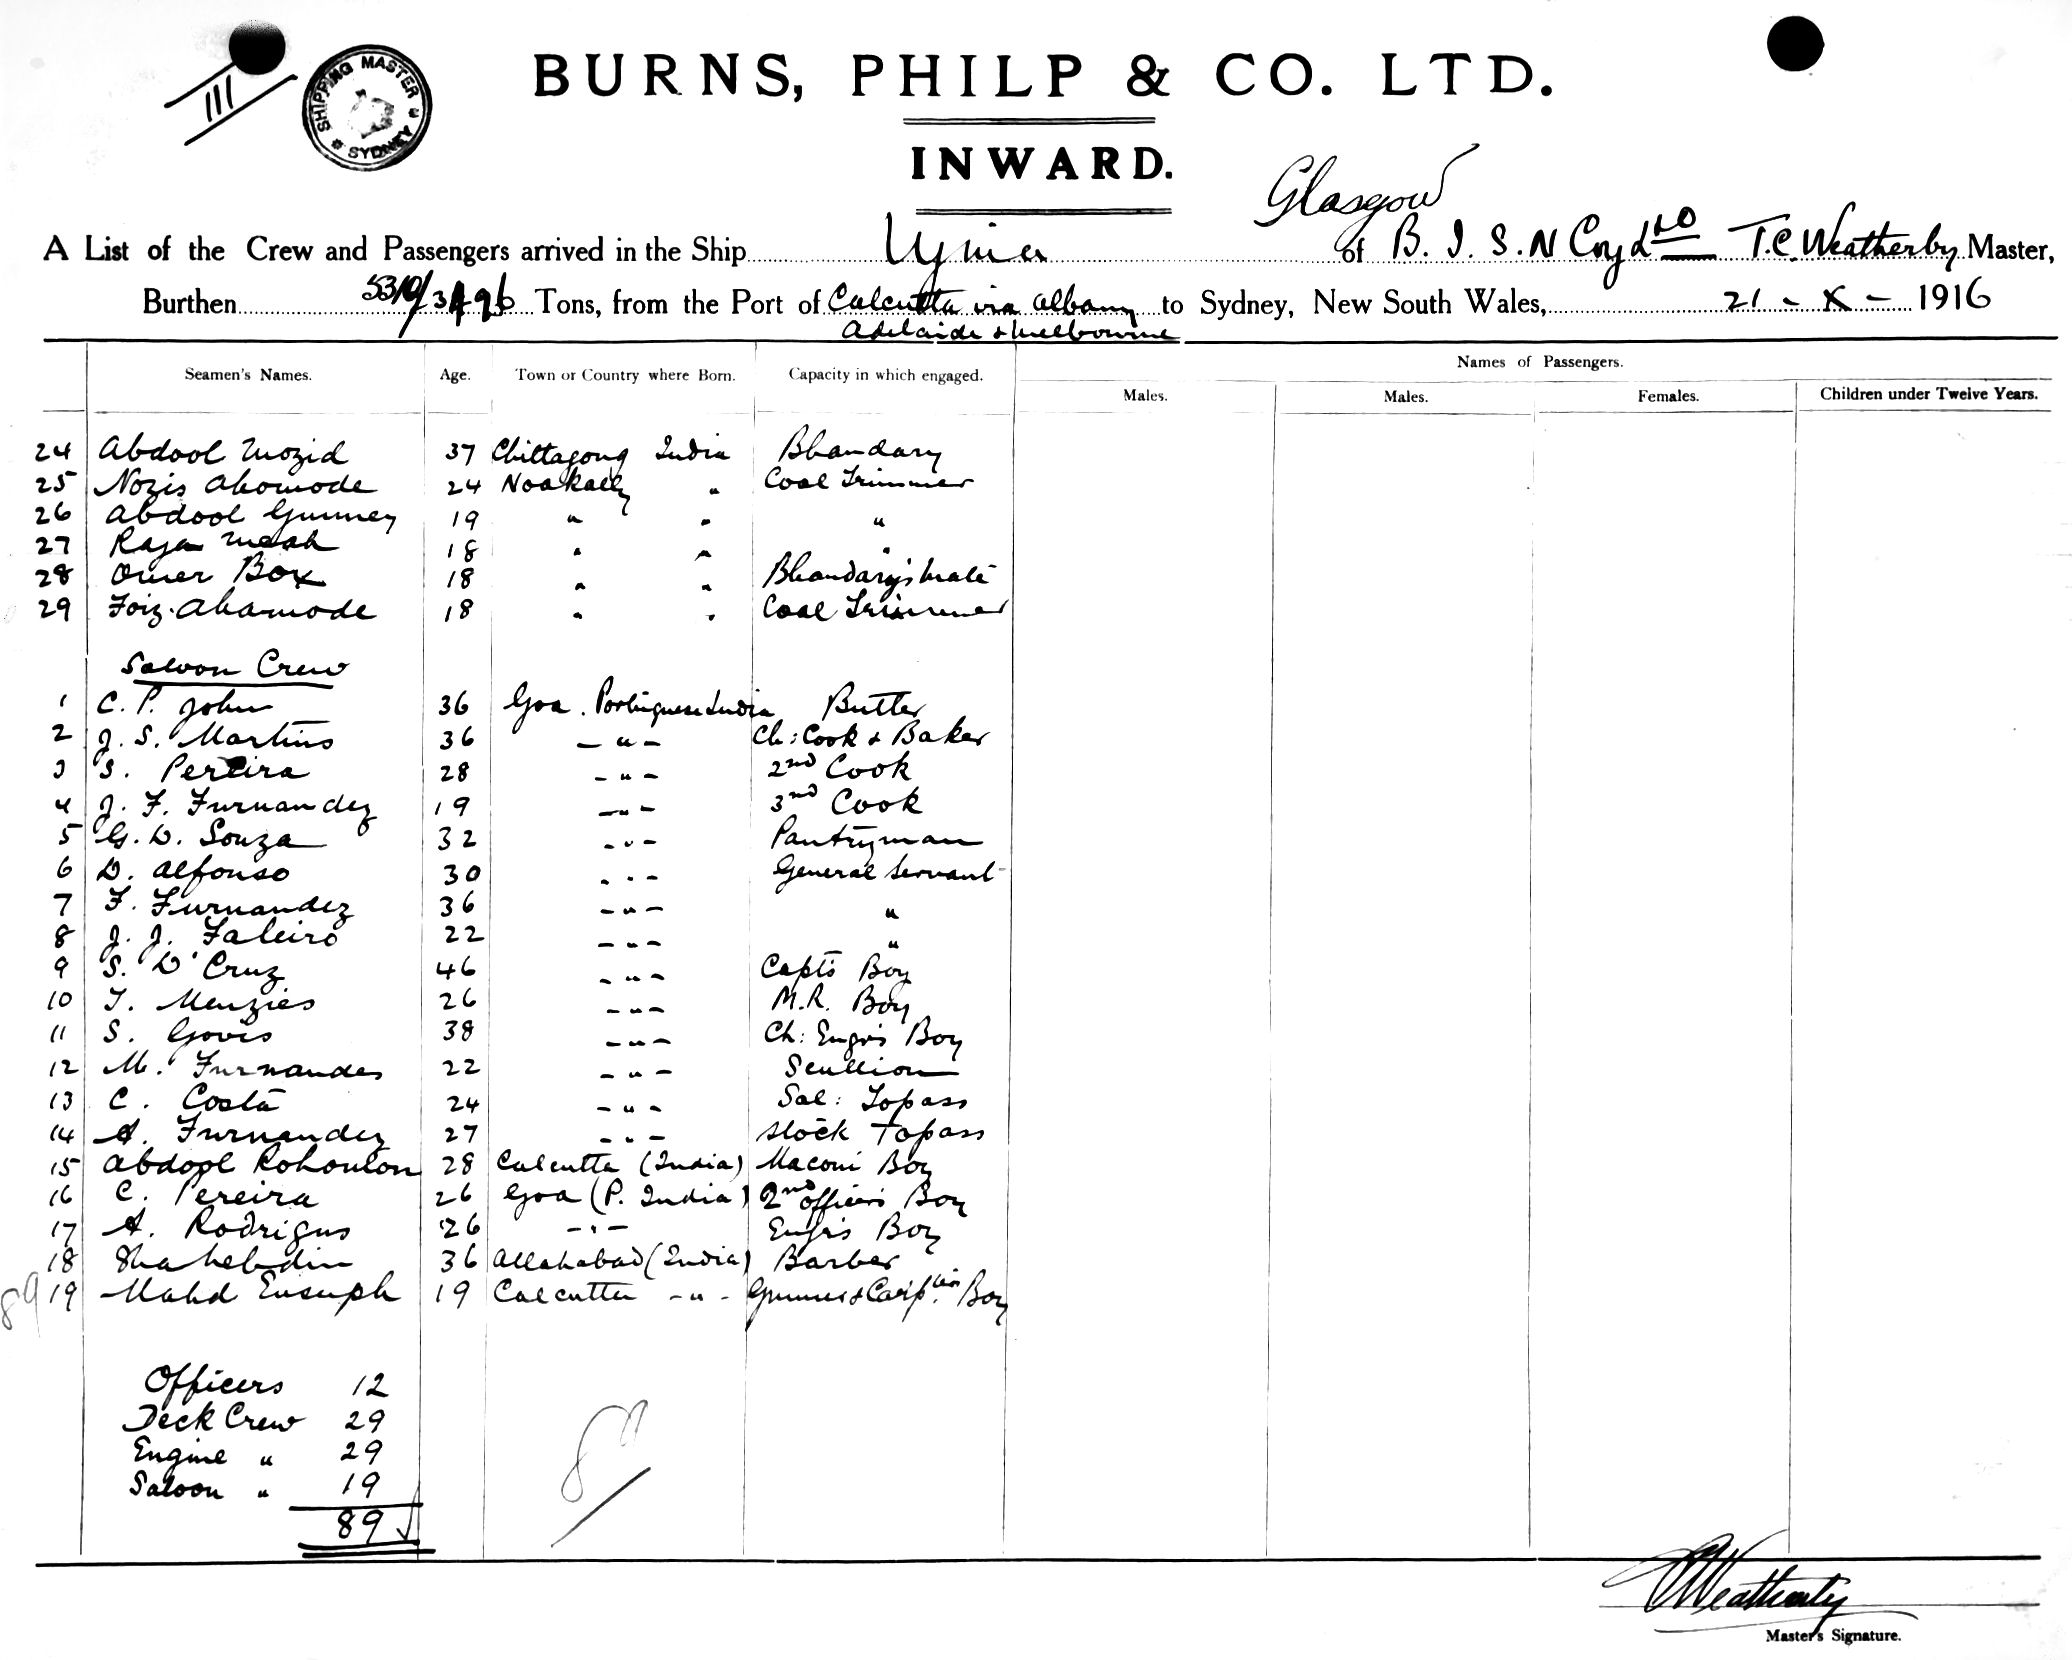 111
SHIPPING MASTER SYDNEY
BURNS, PHILP & CO. LTD.
INWARD.
Glasgow
A List of the Crew and Passengers arrived in the Ship Ujina of B. I. S. N Coy Ltd T.C. Weatherby Master,
Burthen 5310/3496 Tons, from the Port of Calcutta via Albany to Sydney, New South Wales, 21 - X - 1916
Adelaide & Melbourne
Names of Passengers.
Seamen's Names. Age. Town or Country where Born. Capacity in which engaged. Males. Males. Females. Children under Twelve Years.
24 Abdool Mozid 37 Chittagong India Bhandary
25 Nozis Ahomode 24 Noakally " Coal Trimmer
26 Abdool Gunney 19 " " "
27 Raja Meah 18 " " "
28 Omer Box 18 " " Bhandary's Mate
29 Foiz Ahamode 18 " " Coal Trimmer
Saloon Crew
1 C. P. John 36 Goa. Portuguese India Butler
2 J. S. Martins 36 - " - Ch: Cook & Baker
3 S. Pereira 28 - " - 2nd Cook
4 J. F. Furnandez 19 - " - 3rd Cook
5 G. D. Souza 32 - " - Pantryman
6 D. Alfonso 30 - " - General Servant
7 F. Furnandez 36 - " - "
8 J. J. Faleiro 22 - " - "
9 S. D'Cruz 46 - " - Capt's Boy
10 T. Menzies 26 - " - M.R. Boy
11 S. Govis 38 - " - Ch: Engr's Boy
12 M. Furnandes 22 - " - Scullion
13 C. Costa 24 - " - Sal: Topass
14 A. Furnandez 27 - " - Stock Topass
15 Abdool Rohoulon 28 Calcutta (India) Maconi Boy
16 C. Pereira 26 Goa (P. India) 2nd Officers Boy
17 A. Rodrigus 26 - " - Engrs Boy
18 Shahebdin 36 Allahabad (India) Barber
89 19 Mahd Eusuph 19 Calcutta - " - Gunners & Carpter Boy
Officers 12
Deck Crew 29
Engine " 29
Saloon " 19
89
89
Weatherby
Master's Signature.